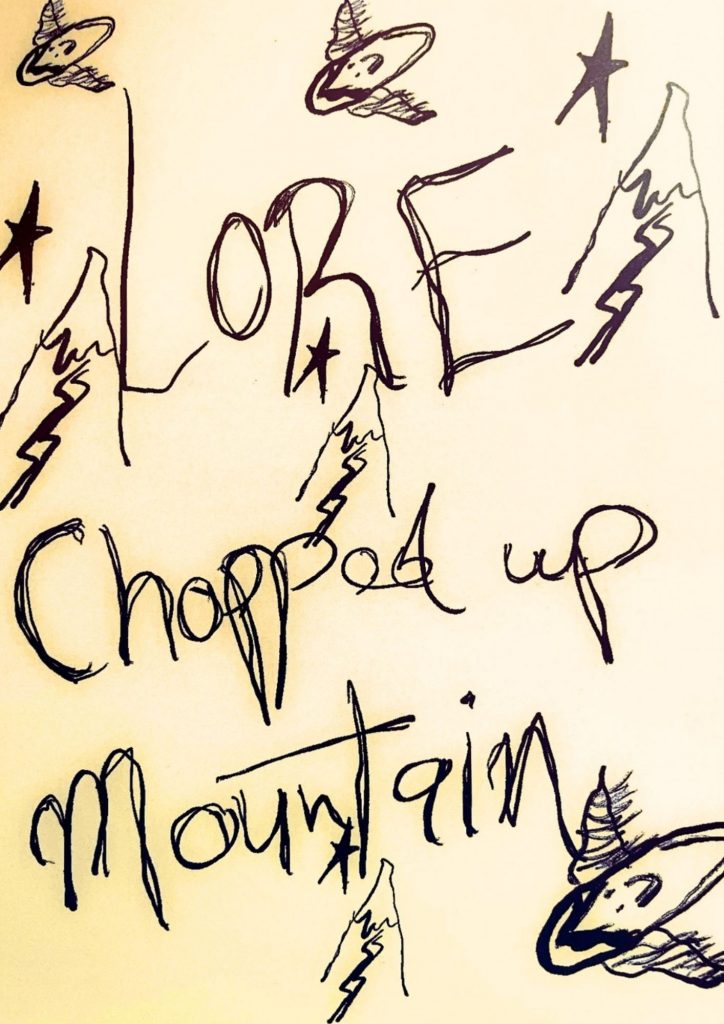 LORE
Chopped up
Mountain